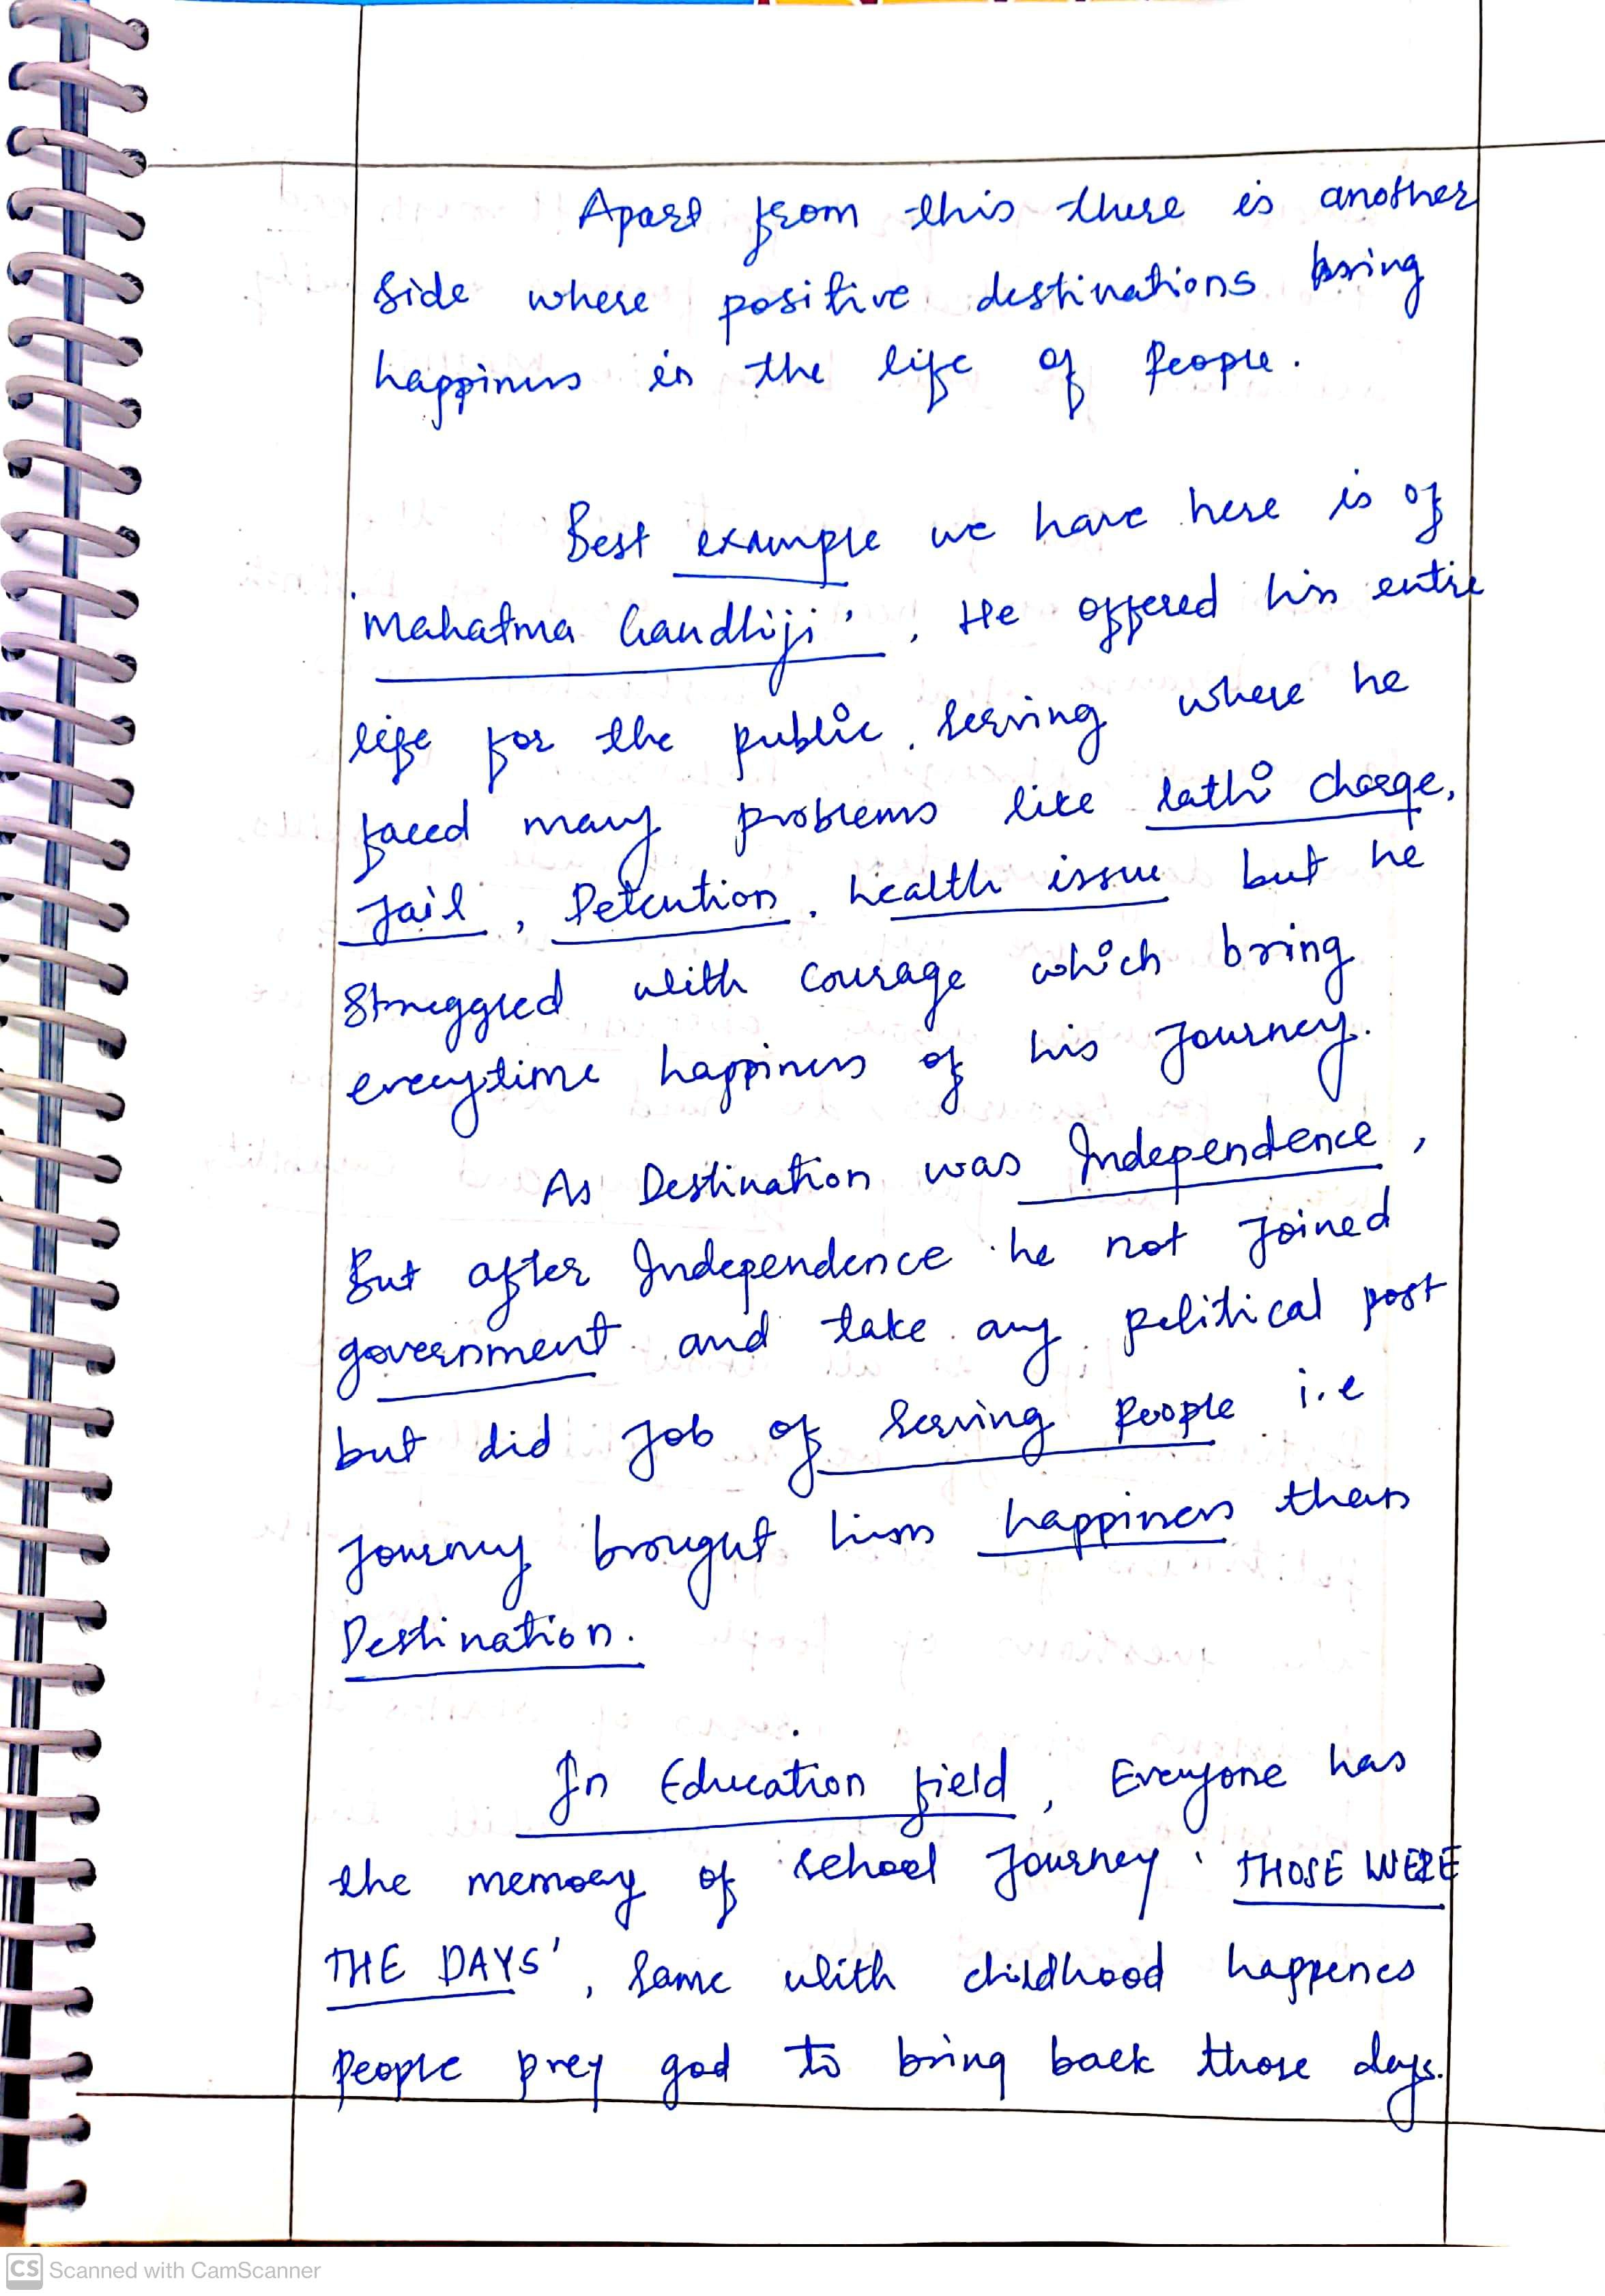 Apart from this there is another
side where positive destinations bring
happiness in the life of People.
Best example we have here is of
'Mahatma Gandhiji', He offered his entire
life for the public serving where he
faced many problems like lathi charge,
Jail, Detention, health issue but he
Struggled with courage which bring
everytime happiness of his Journey.
As Destination was Independence,
But after Independence he not joined
government and take any political post
but did Job of Serving People i.e
Journey brought him happiness than
Destination.
In Education field, Everyone has
the memory of school Journey 'THOSE WERE
THE DAYS', Same with childhood happenes
People prey god to bring back those days.
CS Scanned with CamScanner